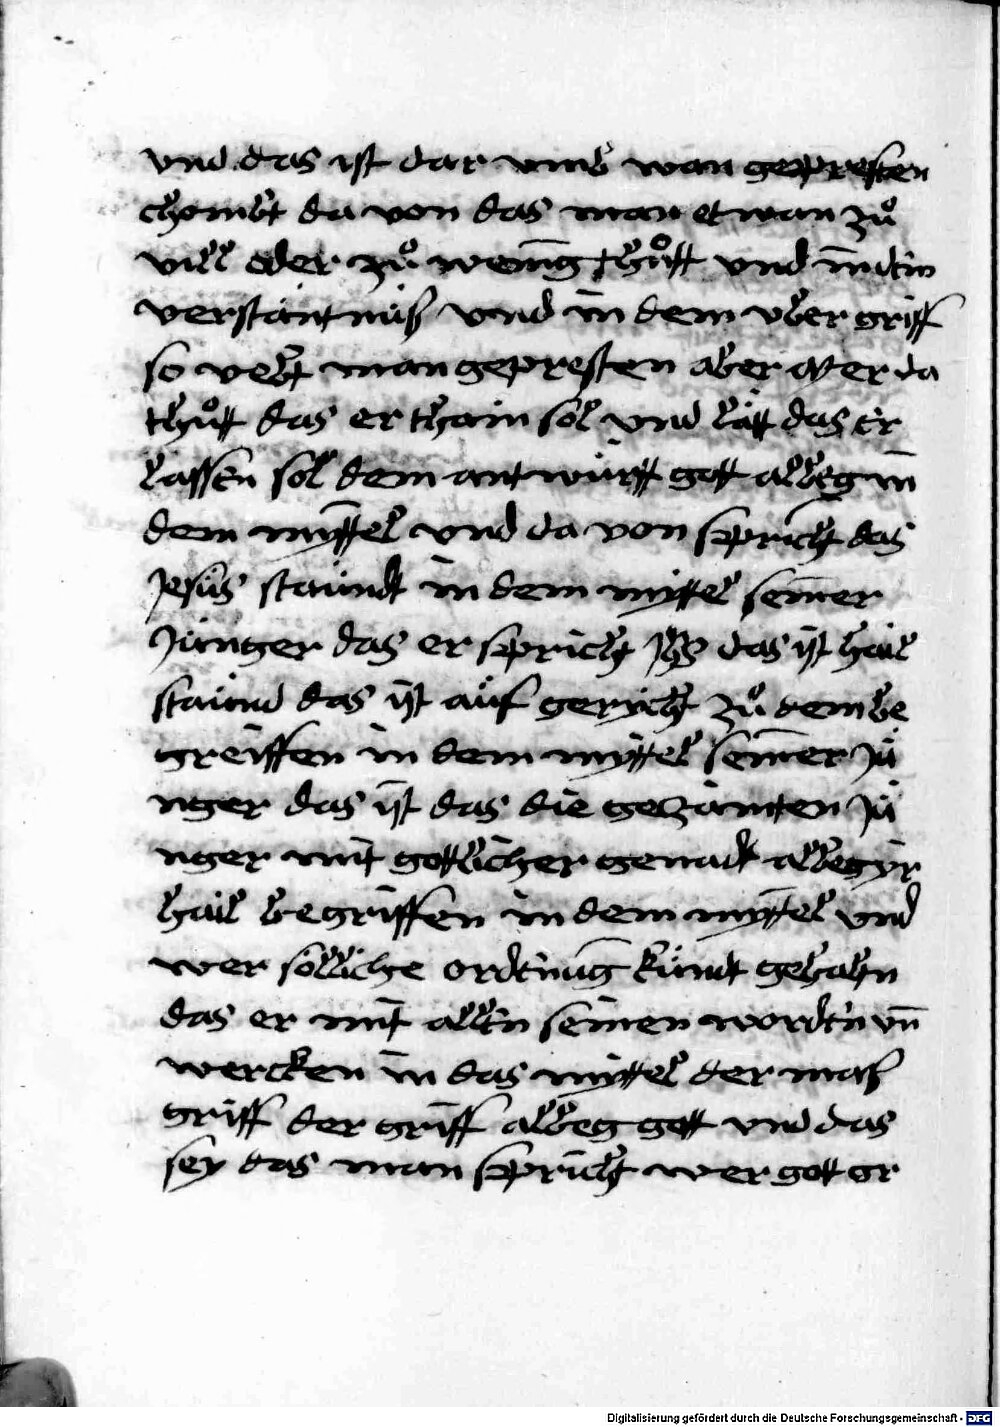 vnd das ist dar vmb wan gepresten
chombt da von das man etwan zů
vill oder zů wenīg thůtt vnd
verstäntnüß vnd in dem vber griff
so vebt man gepresten aber wer da
thůtt das er thain sol vnd lätt das er
lassen sol dem antwürtt gott albeg in
dem myttel vnd da von spricht das
Jesüs staündt in dem myttel seiner
Jünger das er spricht Jhs das ist hail
staünd das ist aüf gericht zů dem be
greiffen in dem myttel seiner Jü
nger das ist das die gelzämten Jü
nger mit gottlicher genadt albeg ir
hail begriffen in dem myttel vnd
wer sölliche ordenūg kündt gehabn
das er mit allen seinen worden vn̄
wercken in das myttel der maß
griff der griff albeg gott vnd das
sey das man spricht wer gott gr
Digitalisierung gefördert durch die Deutsche Forschungsgemeinschaft - DFG